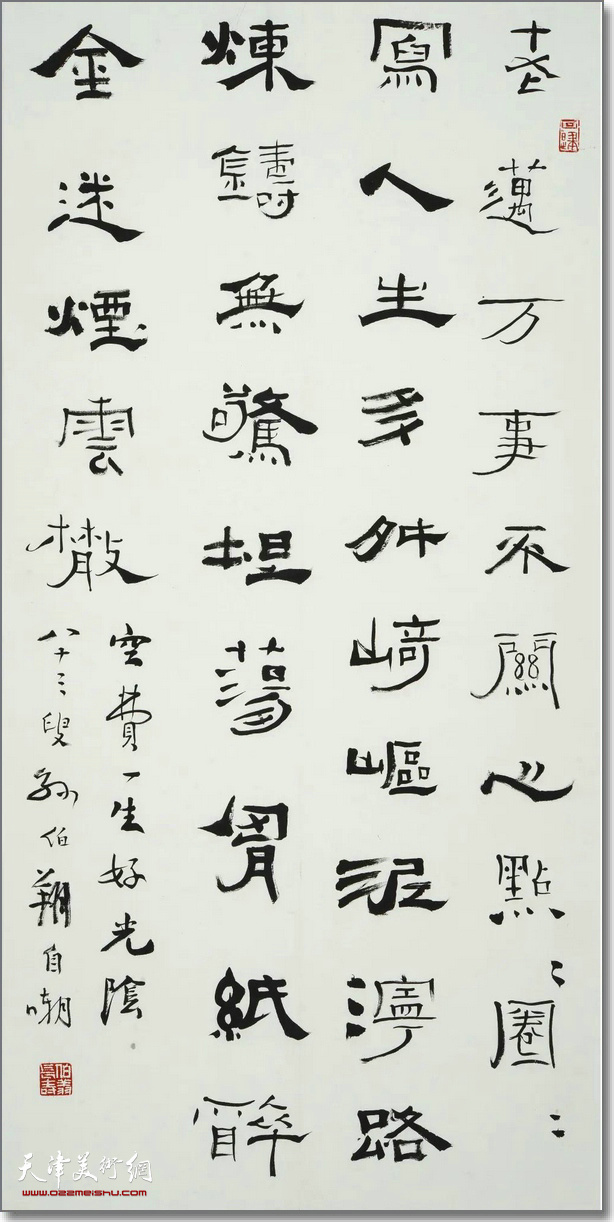 老邁万事不關心點〻圈〻
寫人生多舛崎嶇泥濘路
煉鑄無驚坦蕩胷紙醉
金迷煙雲散
空費一生好光陰
八十三叟孫伯翔自嘲
天津美術網
www.022meishu.com